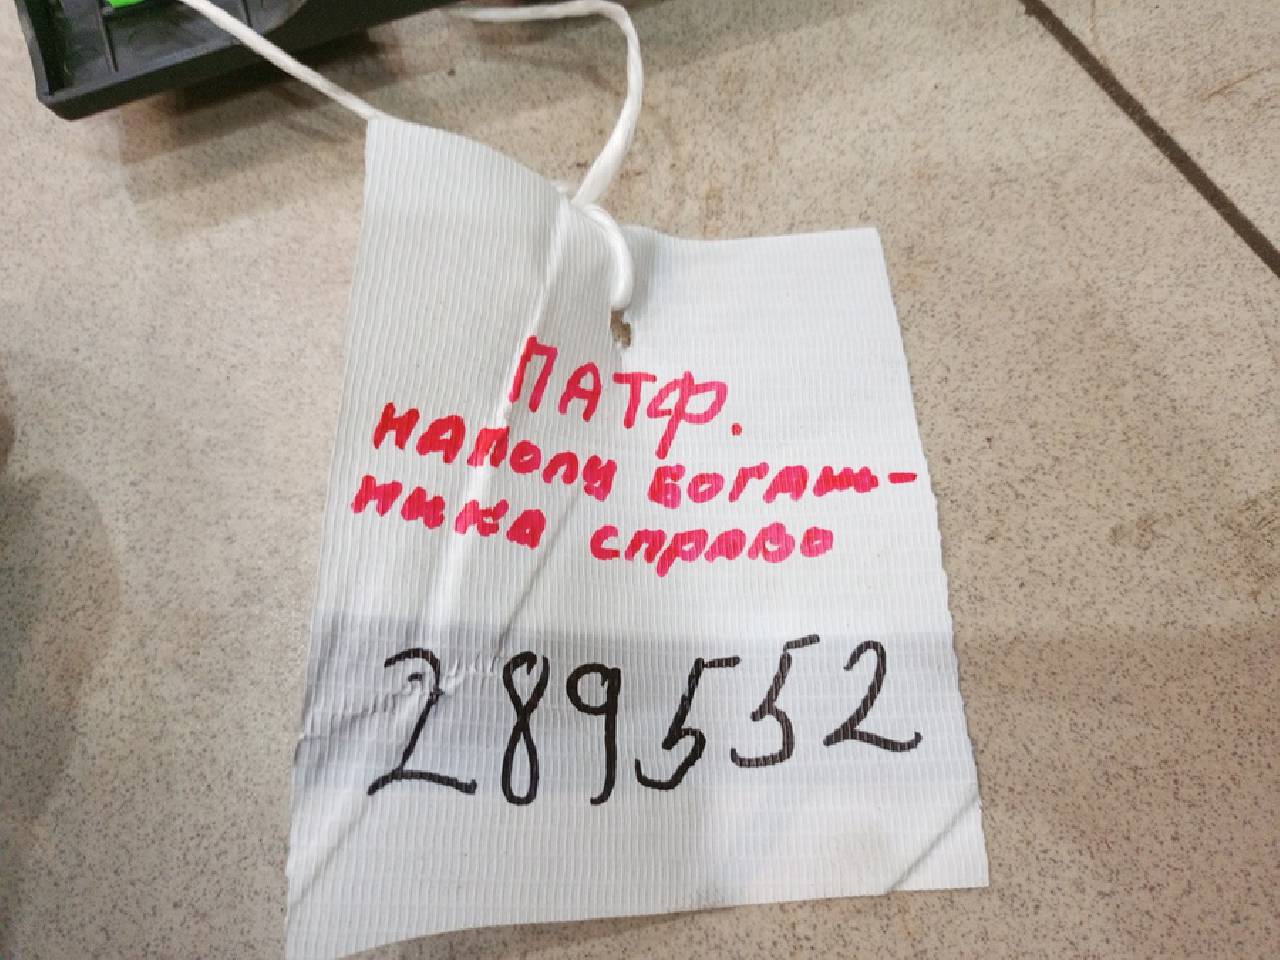 ПАТФ.
НАПОЛУ БОГАЖ-
НИКА СПРАВО
289552